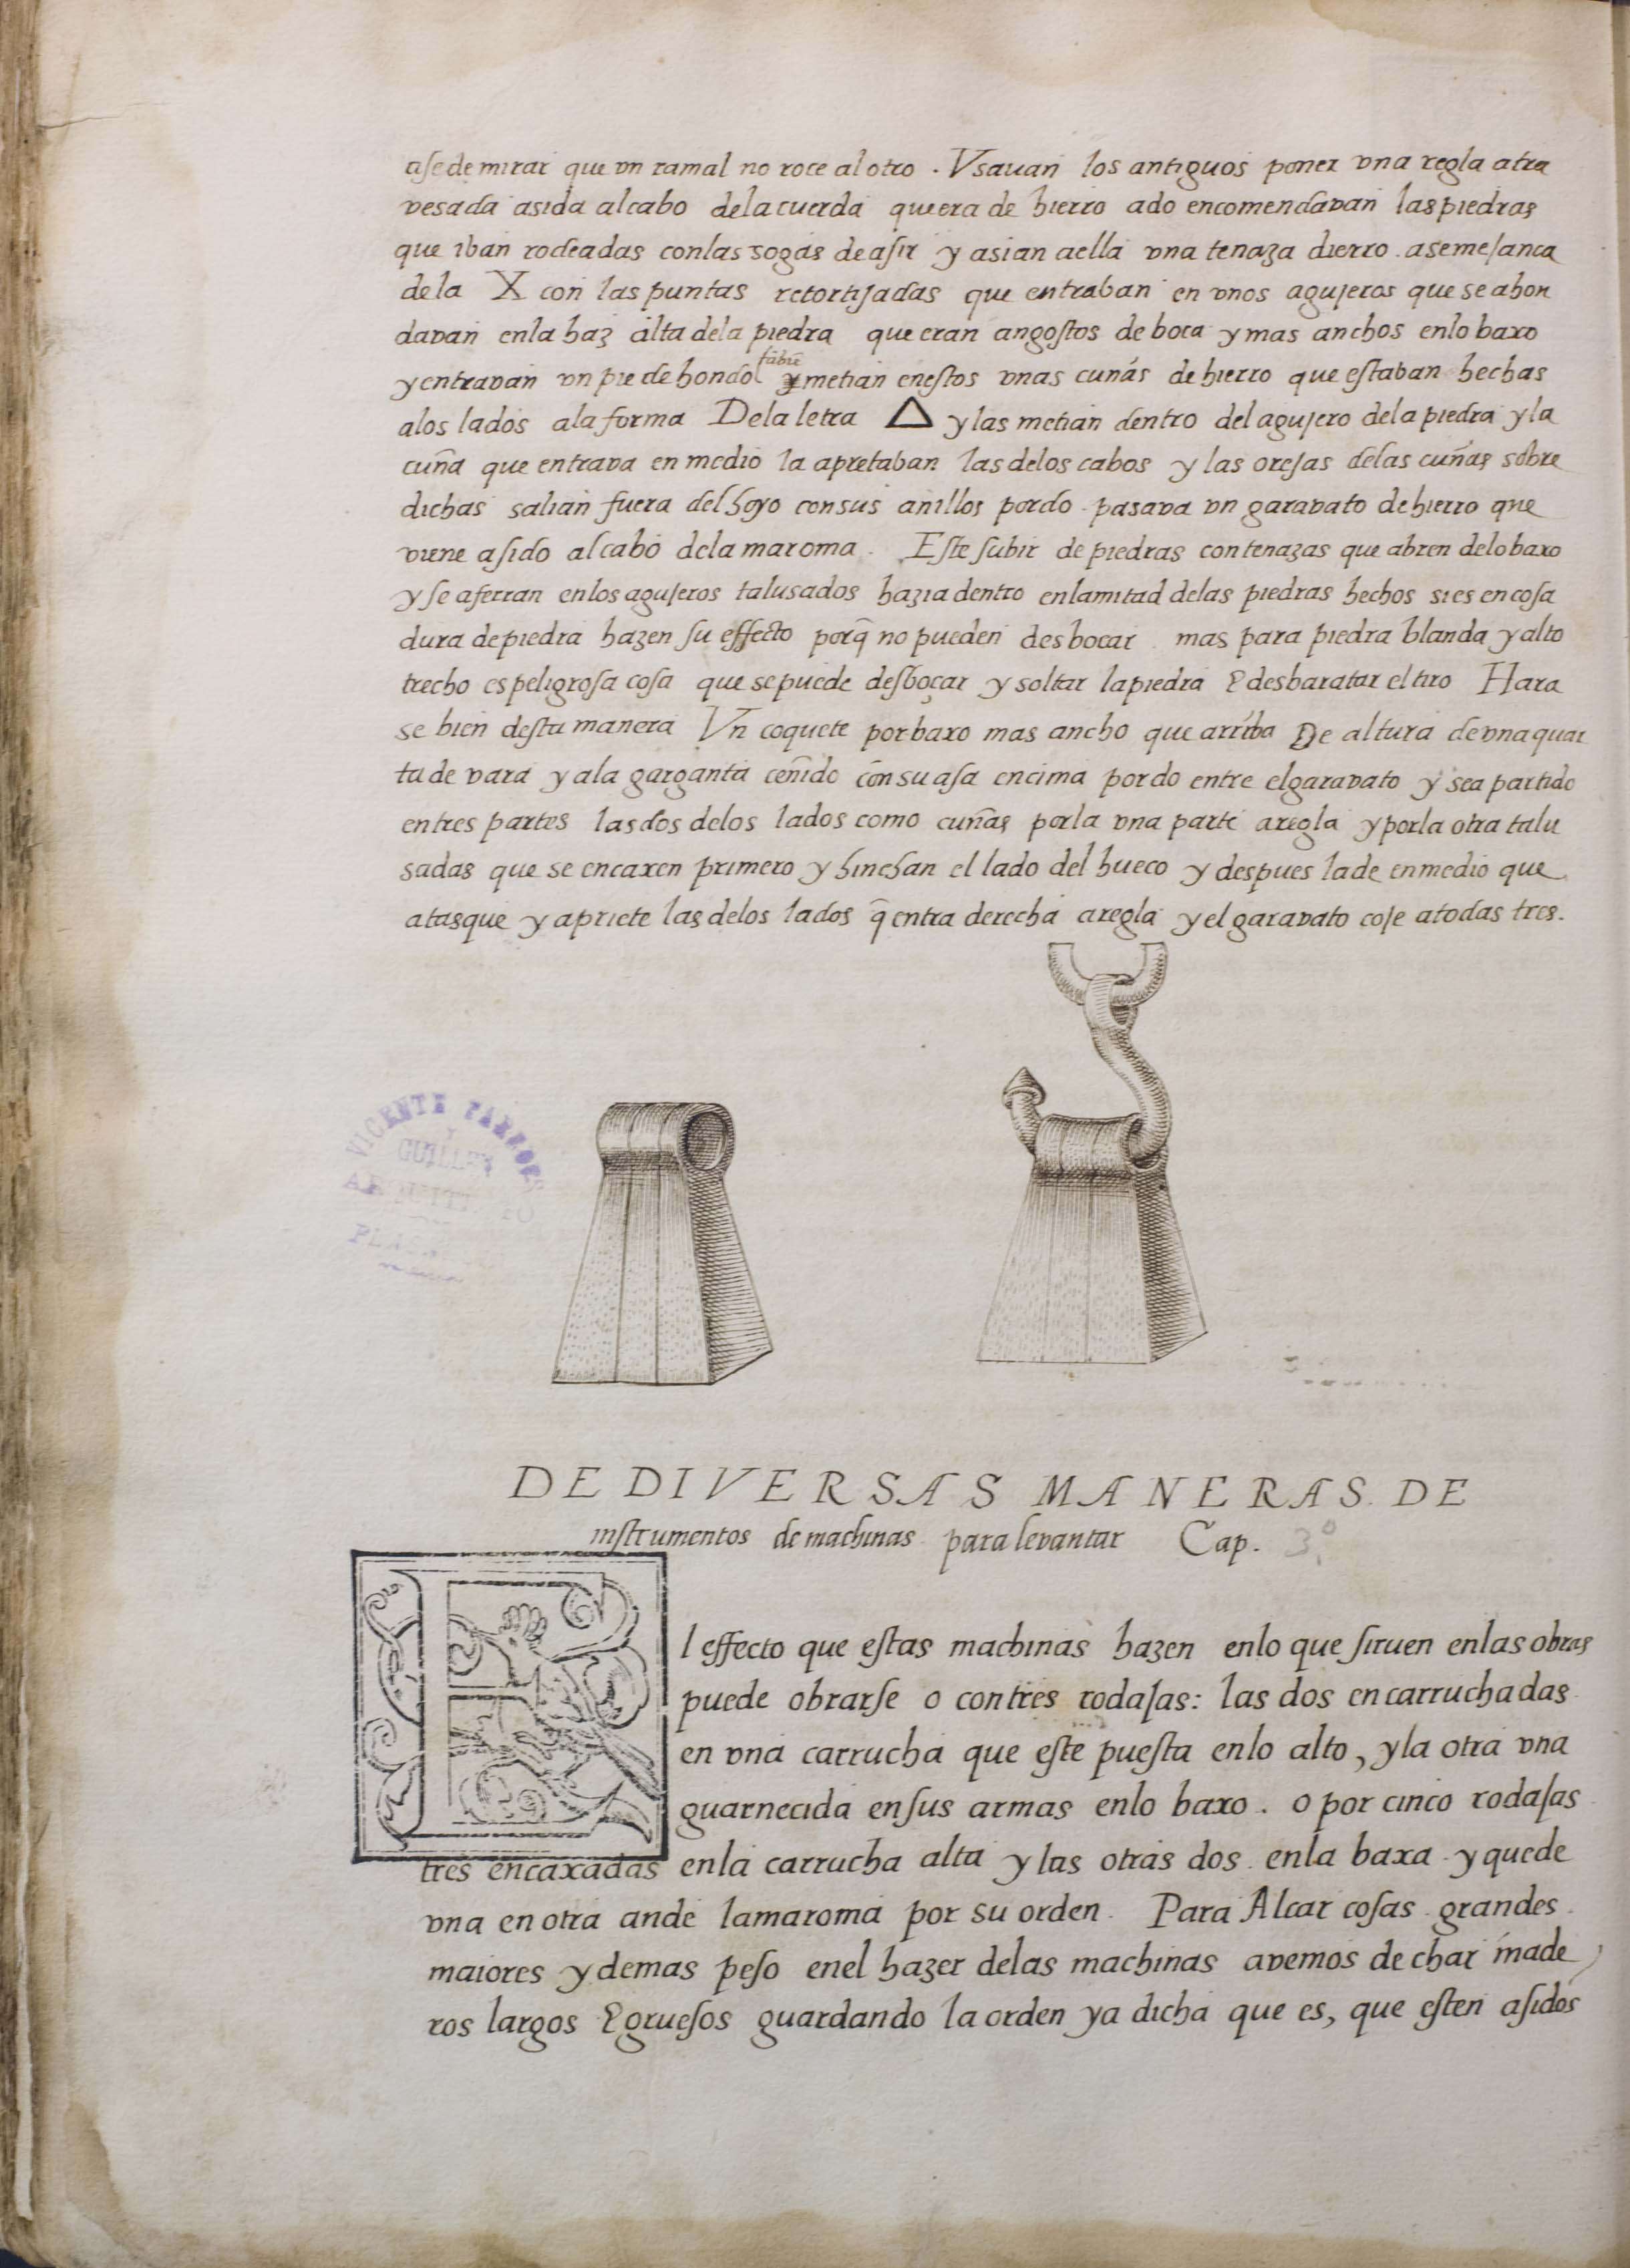 ase de mirar que vn ramal no roce al otro . Vsauan los antiguos poner vna regla atra
vesada asida al cabo dela cuerda que era de hierro ado encomendavan las piedras
que iban rodeadas con las sogas de asir y asian aella vna tenaza dierro . asemejanca
dela X con las puntas retortijadas que entraban en vnos agujeros que se ahon
davan en la haz alta dela piedra que eran angostos de boca y mas anchos enlo baxo
y entravan vn pie de hondo y metian enestos vnas cuñas de hierro que estaban hechas
alos lados ala forma Dela letra Δ y las metian dentro del agujero dela piedra y la
cuña que entrava en medio la apretaban las delos cabos y las orejas delas cuñas sobre
dichas salian fuera del hoyo con sus anillos por do pasava vn garavato de hierro que
viene asido al cabo dela maroma . Este subir de piedras con tenazas que abren delo baxo
y se aferran en los agujeros talusados hazia dentro en la mitad delas piedras hechos si es en cosa
dura de piedra hazen su effecto porq̃ no pueden desbocar mas para piedra blanda y alto
trecho es peligrosa cosa que se puede desboçar y soltar la piedra & desbaratar el tiro Hara
se bien desta manera Vn coquete por baxo mas ancho que arriba De altura de vna quar
ta de vara y ala garganta ceñido con su asa encima por do entre el garavato y sea partido
en tres partes las dos delos lados como cuñas por la vna parte aregla y por la otra talu
sadas que se encaxen primero y hinchan el lado del hueco y despues la de en medio que
atasque y apriete las delos lados q̃ entra derecha aregla y el garavato coje atodas tres .
VICENTE PAREDES
Y
GUILLEN
DE DIVERSAS MANERAS DE
instrumentos de machinas para levantar Cap. 3º
El effecto que estas machinas hazen enlo que siruen en las obras
puede obrarse o con tres rodajas: las dos encarruchadas
en vna carrucha que este puesta enlo alto, y la otra vna
guarnecida en sus armas enlo baxo . o por cinco rodajas
tres encaxadas en la carrucha alta y las otras dos en la baxa y quede
vna en otra ande la maroma por su orden . Para Alcar cosas grandes
maiores y demas peso enel hazer delas machinas avemos de char made
ros largos & gruesos guardando la orden ya dicha que es, que esten asidos